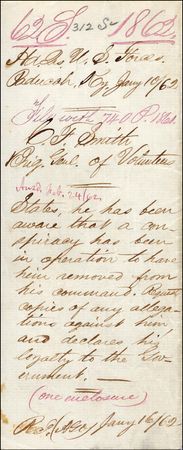 62 S 312 S 1862
Hd Qrs U.S. Forces
Paducah, Ky, Jany 10/62
File with 740 P.
C F Smith
Brig Genl. of Volunteers
Ansd Feb. 24/62
States, he has been
aware that a con-
spiracy has been
in operation to have
him removed from
his command. Requests
copies of any allega-
tions against him
and declares his
loyalty to the Gov-
ernment.
(one enclosure)
Recd Jany 16/62